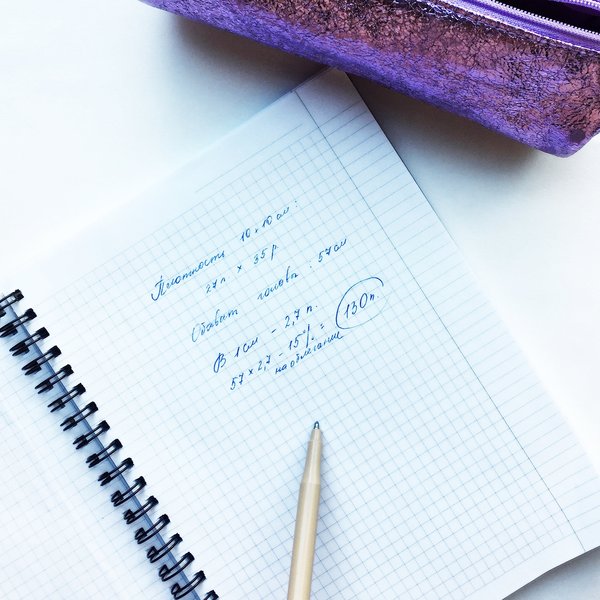 Плотность 10×10 см:
27 п. × 35 р.
Обхват головы: 57 см
В 1 см - 2,7 п.
57 × 2,7 - 15% = 130 п.
на облегание